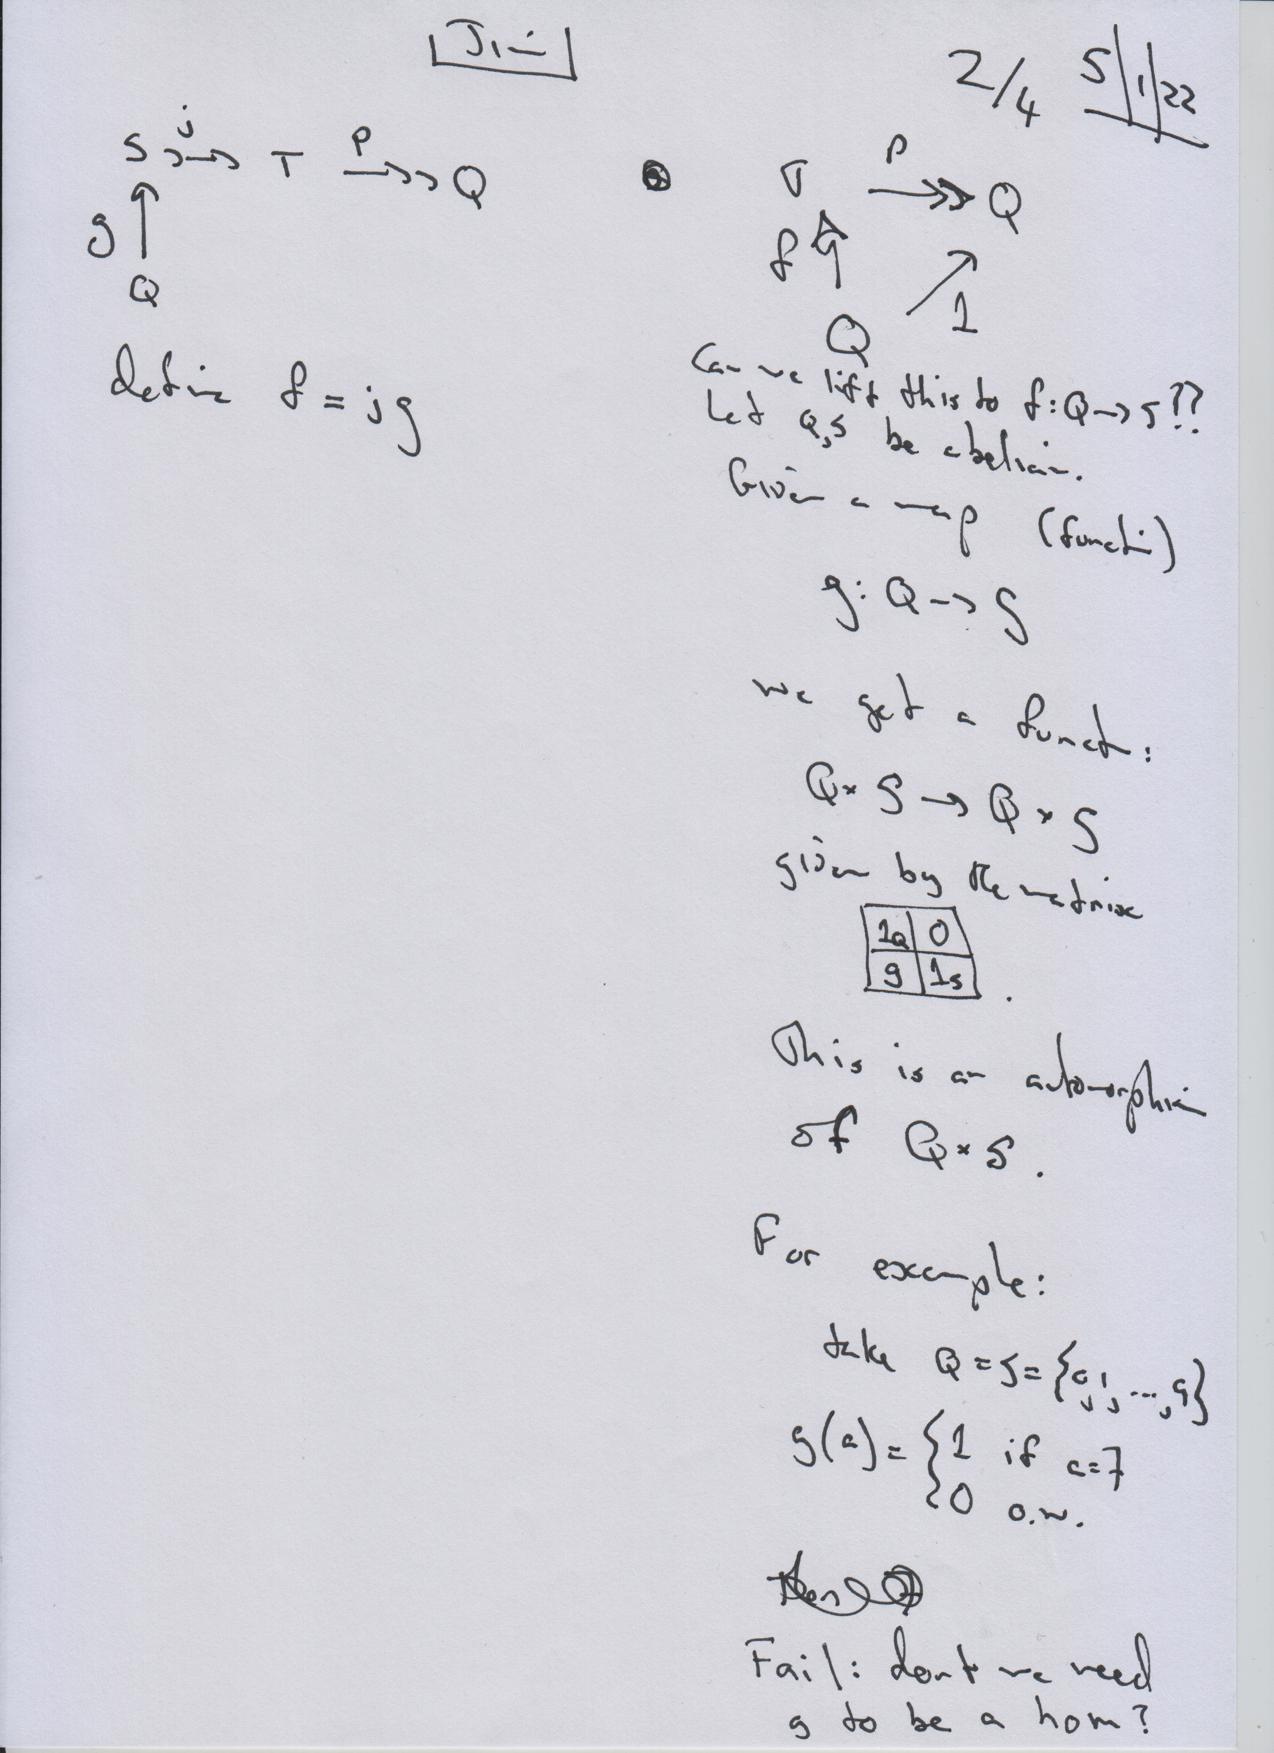 Jim
2/4 5/1/22
S >-> T ->> Q
j
p
g ↑
Q
define f = jg
T ->> Q
p
f ↑
1
Q
Can we lift this to f: Q -> S??
Let Q, S be abelian.
Given a map (function)
g: Q -> S
we get a funct:
Q × S -> Q × S
given by the matrix
1Q 0
g 1S .
This is an automorphism
of Q × S.
For example:
take Q = S = {0, 1, ..., 9}
g(a) = { 1 if a=7
0 o.w.
Fail: don't we need
g to be a hom?